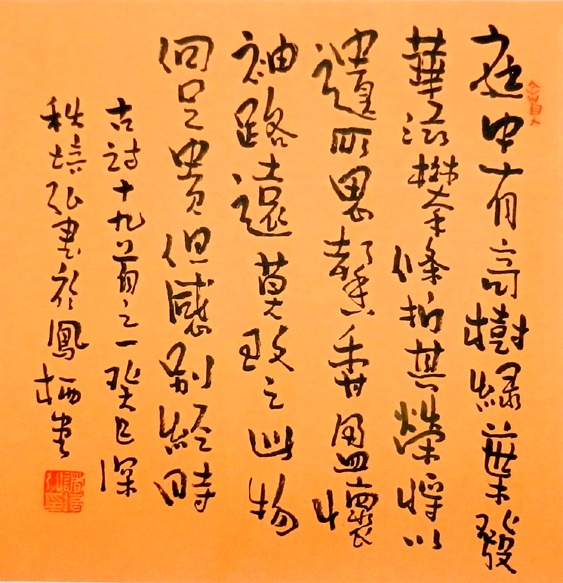 庭中有高樹綠葉發
華滋攀條折其榮將以
遺所思馨香盈懷
袖路遠莫致之此物
何足貴但感別經時
古詩十九首之一癸巳深
秋培弘書於鳳栖堂